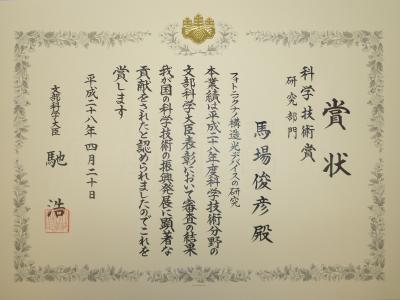 賞状
科学技術賞
研究部門
馬場俊彦殿
フォトニックナノ構造光デバイスの研究
本業績は平成二十八年度科学技術分野の
文部科学大臣表彰において審査の結果
我が国の科学技術の振興発展に顕著な
貢献をされたと認められましたのでこれを
賞します
平成二十八年四月二十日
文部科学大臣
馳浩